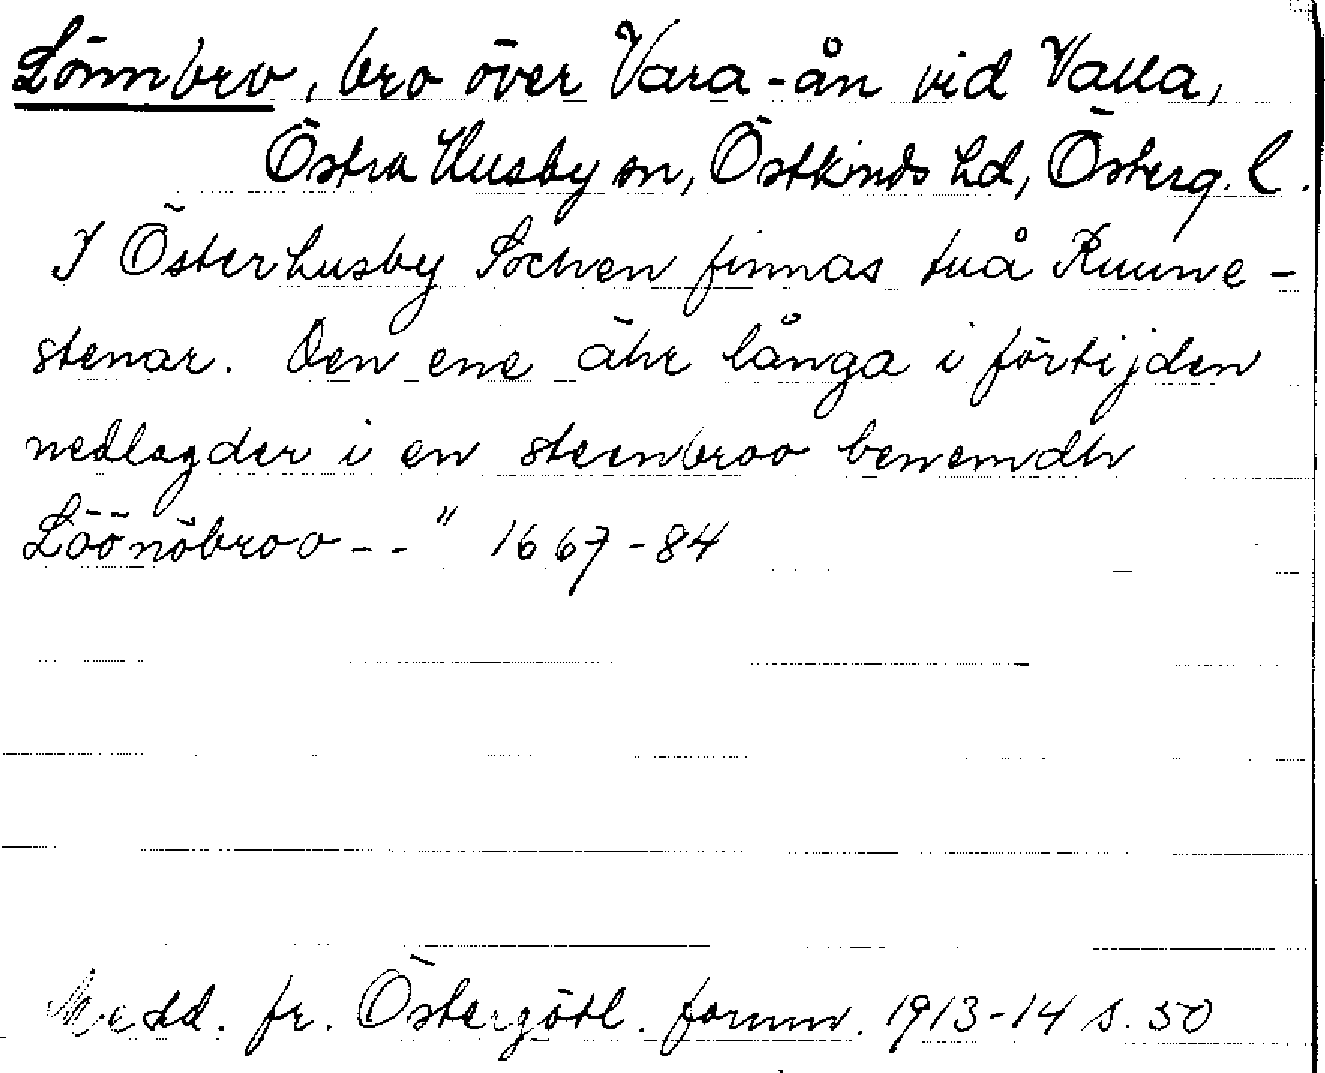 Lönnbro, bro över Vara-ån vid Valla,
Östra Husby sn, Östkinds hd, Österg. l.
I Österhusby Sochen finnas tuå Runne-
stenar. Den ene ähr långa i förtijden
nedlagder i en steenbroo benemdh
Löönöbroo - - " 1667-84
Medd. fr. Östergötl. fornm. 1913-14 s. 50